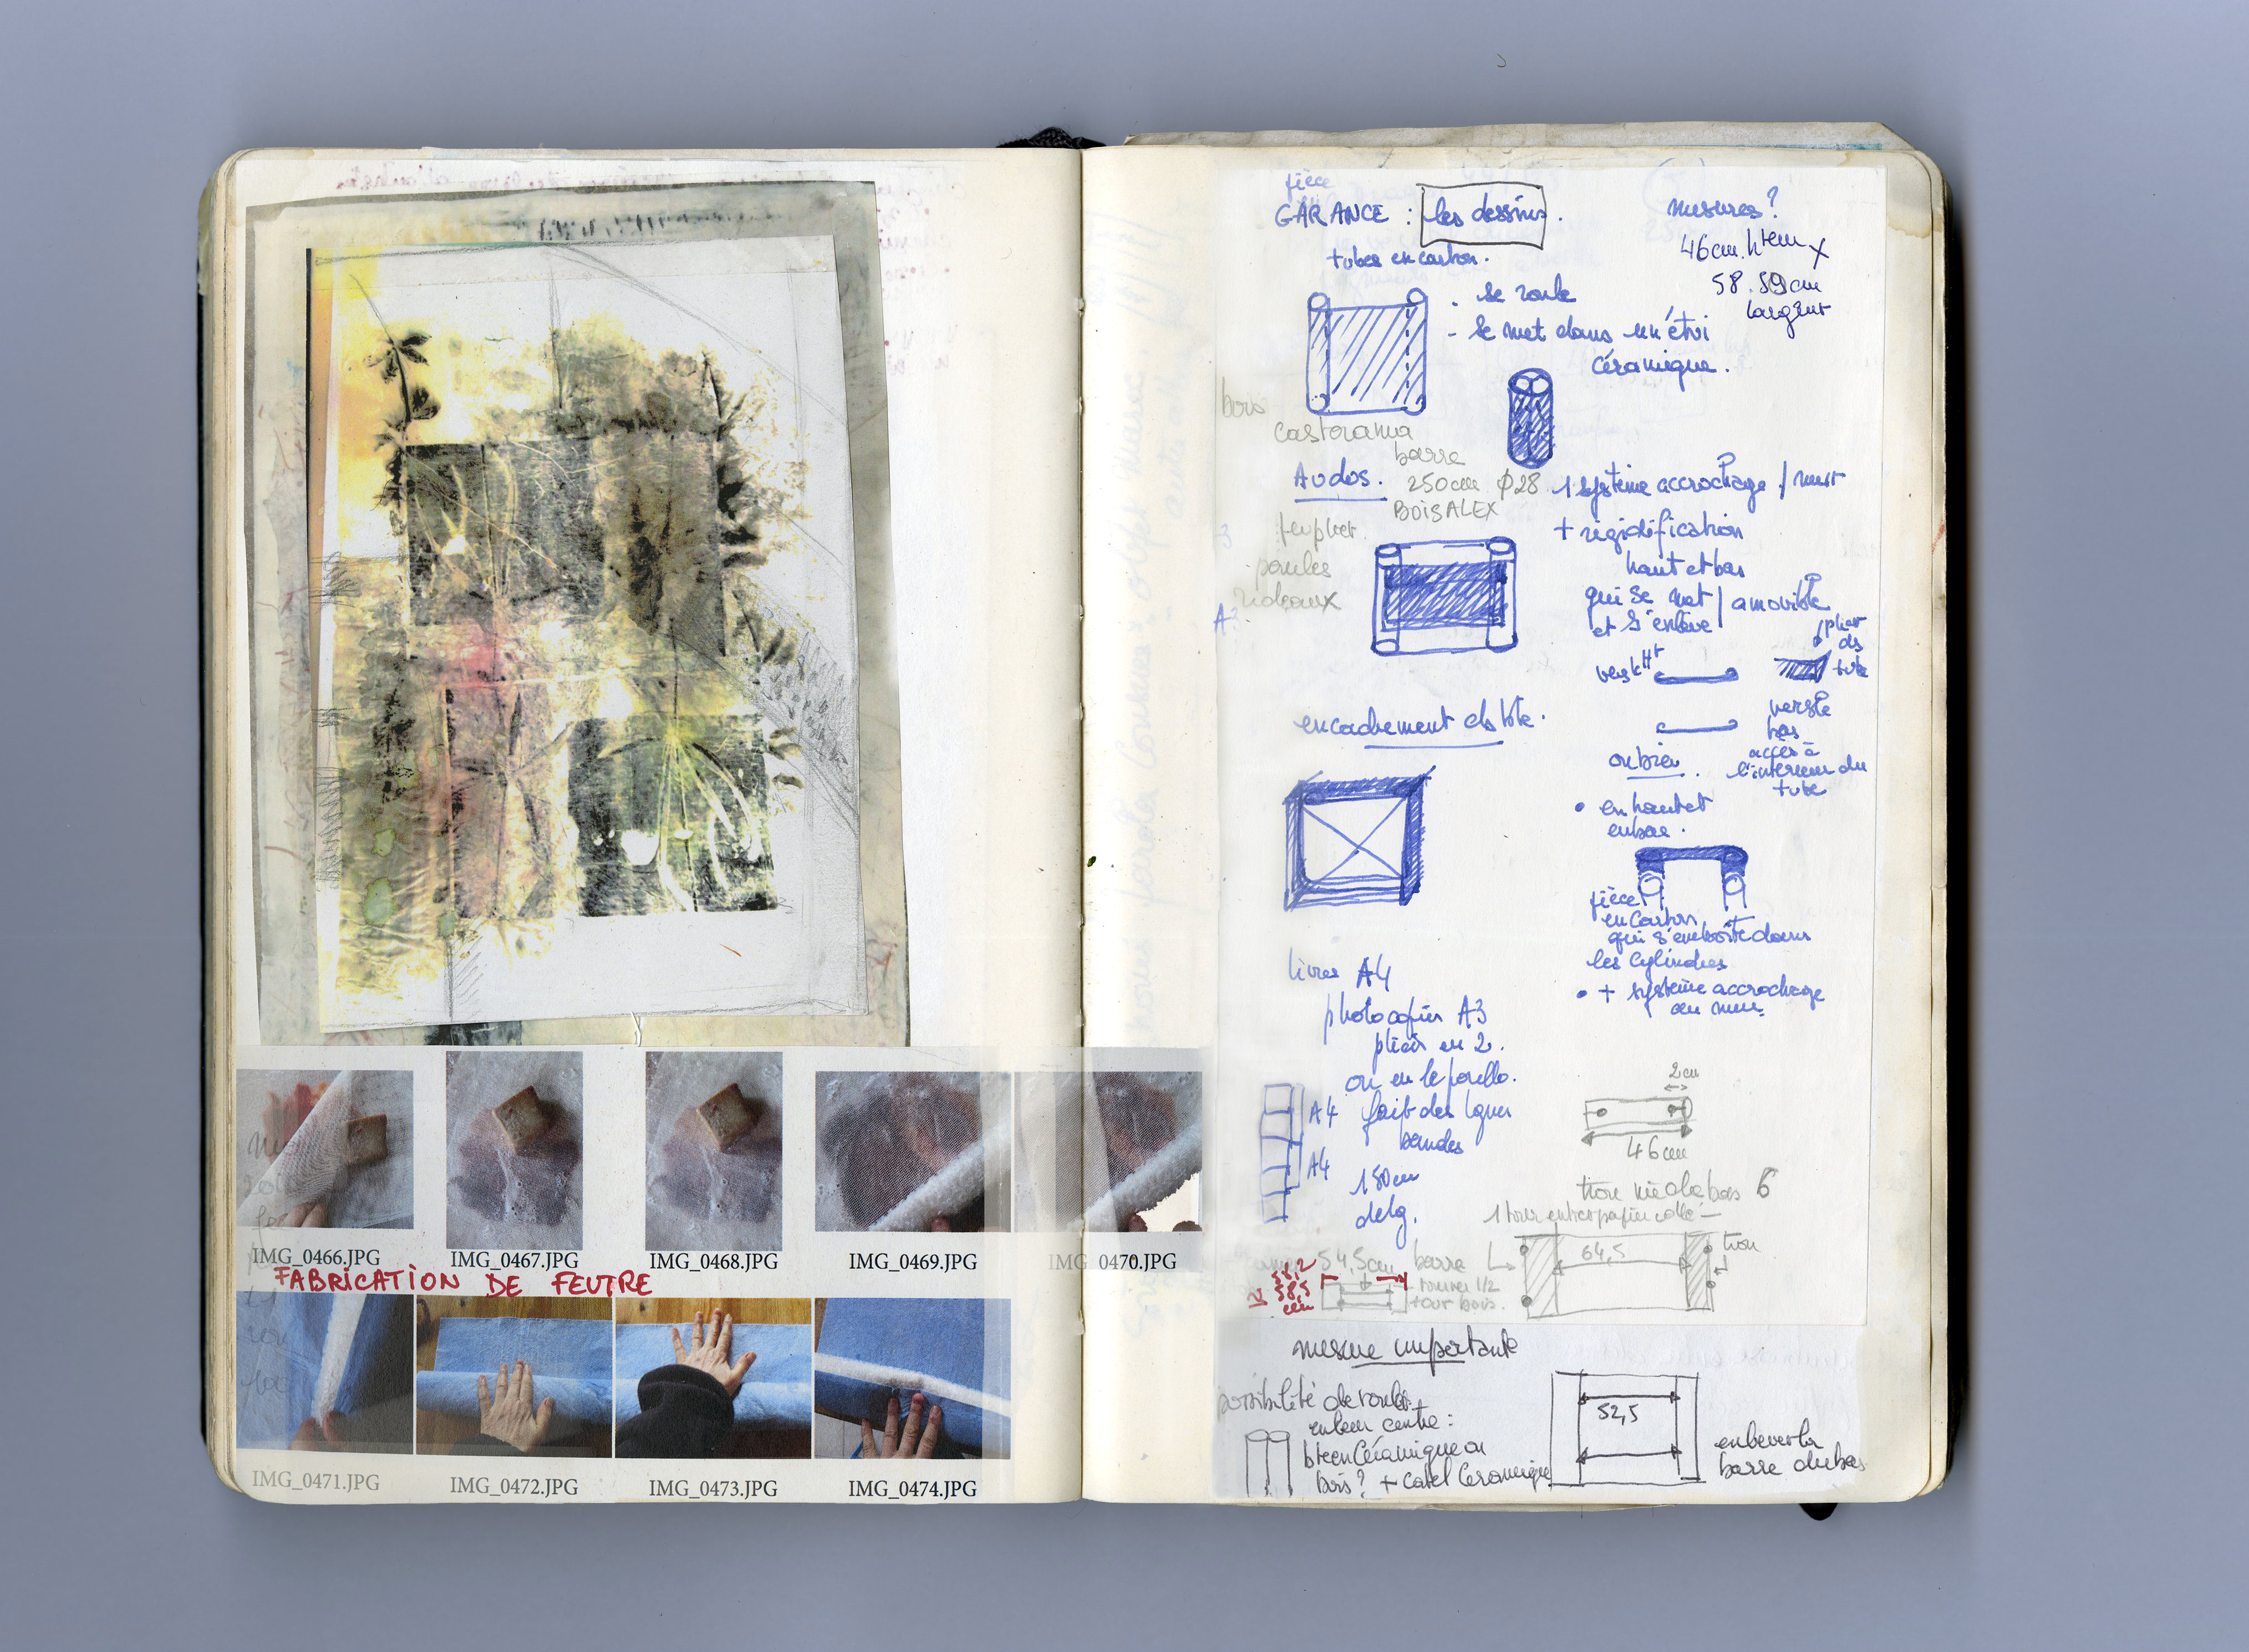 IMG_0466.JPG
IMG_0467.JPG
IMG_0468.JPG
IMG_0469.JPG
IMG_0470.JPG
FABRICATION DE FEUTRE
IMG_0471.JPG
IMG_0472.JPG
IMG_0473.JPG
IMG_0474.JPG
pièce
GARANCE : les dessins.
tubes en carton.
mesures?
46cm. htem x
58.59cm
largeur
- se roule
- se met dans un étui
céramique.
bois
castorama
barre
250cm φ28
BOIS ALEX
Au dos.
1 système accrochage / mur
+ rigidification
haut et bas
qui se met / amovible
et s'enlève
poulies
rideaux
vers le Ht
plier
ds
tube
vers le
bas
accès à
l'intérieur du
tube
encadrement ds
ou bien.
• en haut et
en bas.
pièce
en carton
qui s'emboîte dans
les cylindres
• + système accrochage
au mur.
livres A4
photocopies A3
pliées en 2.
ou en leporello.
A4 fait des
bandes
A4
150cm
de lg.
2cm
46cm
6
1 tour entre papier collé
64,5
trou
54,5cm barre
58,2
58,5
1/2
tour bois.
mesure importante
possibilité de rouler
en leur centre :
bte en céramique ou
bois? +
52,5
enlever la
barre du bas